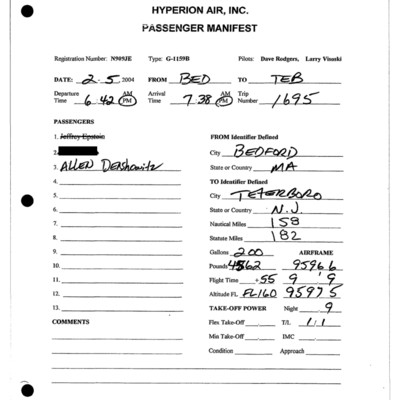 HYPERION AIR, INC.
PASSENGER MANIFEST
Registration Number: N909JE Type: G-1159B Pilots: Dave Rodgers, Larry Visoski
DATE: 2-5 2004 FROM BED TO TEB
Departure Time 6:42 AM PM Arrival Time 7:38 AM PM Trip Number 1695
PASSENGERS
1. Jeffrey Epstein FROM Identifier Defined
2. City BEDFORD
3. ALLEN DERSHOWITZ State or Country MA
4. TO Identifier Defined
5. City TETERBORO
6. State or Country N.J.
7. Nautical Miles 158
8. Statute Miles 182
9. Gallons 200 AIRFRAME
10. Pounds 4562 9596 6
11. Flight Time +55 9 9
12. Altitude FL FL160 9597 5
13. TAKE-OFF POWER Night 9
COMMENTS Flex Take-Off T/L 1/1
Min Take-Off IMC
Condition Approach